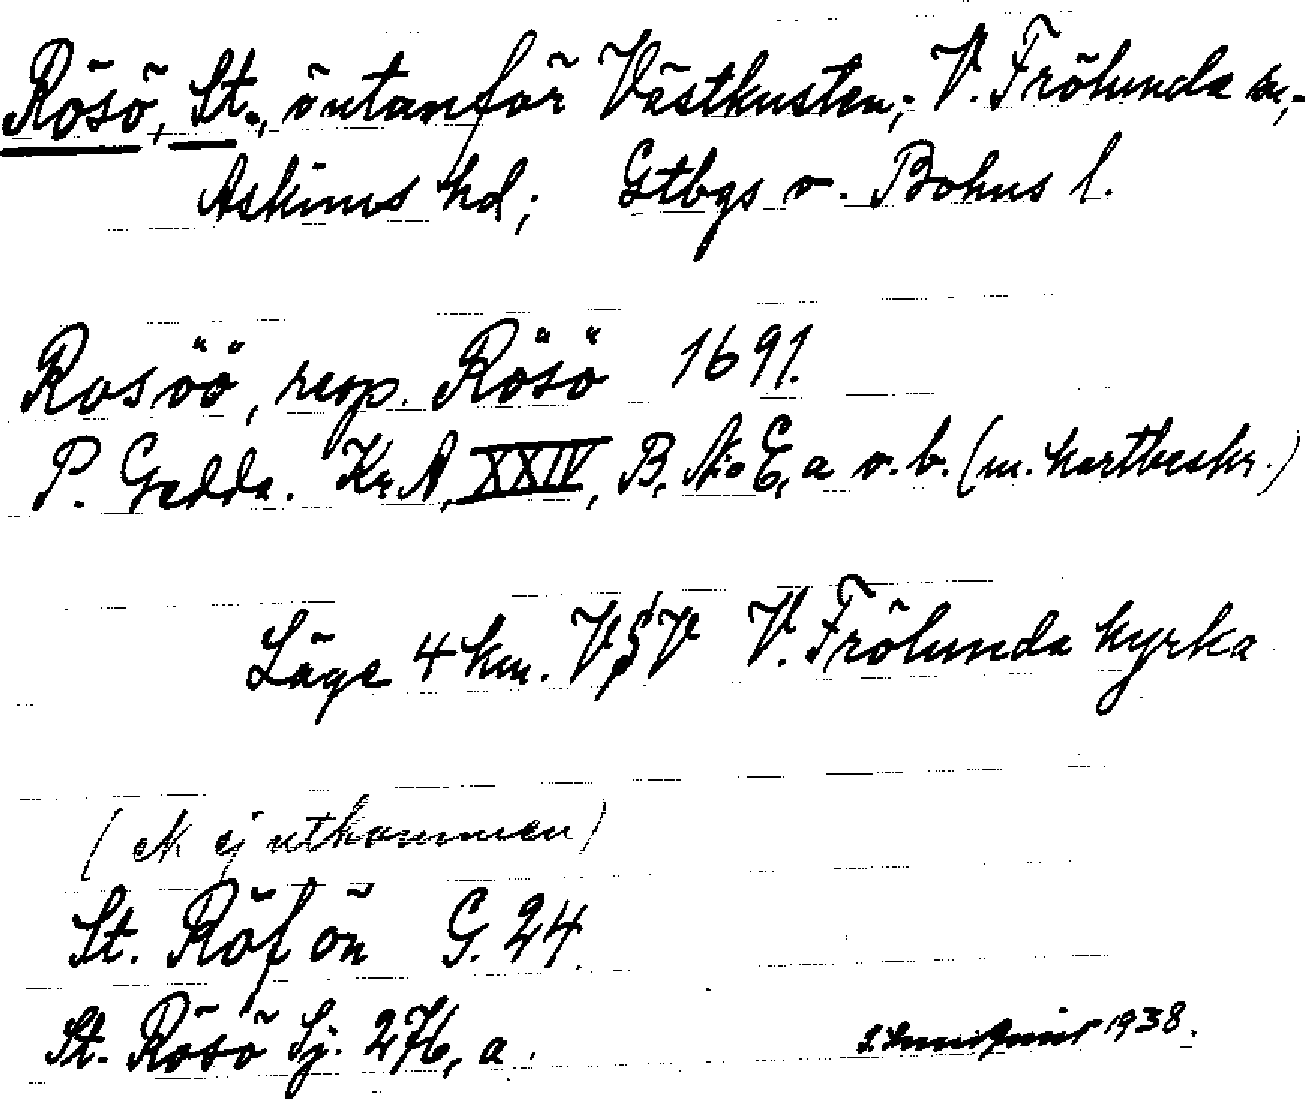 Rösö, St., ö utanför Västkusten; V. Frölunda sn,
Askims hd; Gtbgs o. Bohus l.
Rosöö, resp. Rösö 1691.
P. Gedda. Kr.A, XXIV, B, No E, a o. b. (m. kartbeskr.)
Läge 4 km. VSV V. Frölunda kyrka
(ek ej utkommen)
St. Röf ön G. 24.
St. Rösö Sj. 276, a.
1938.